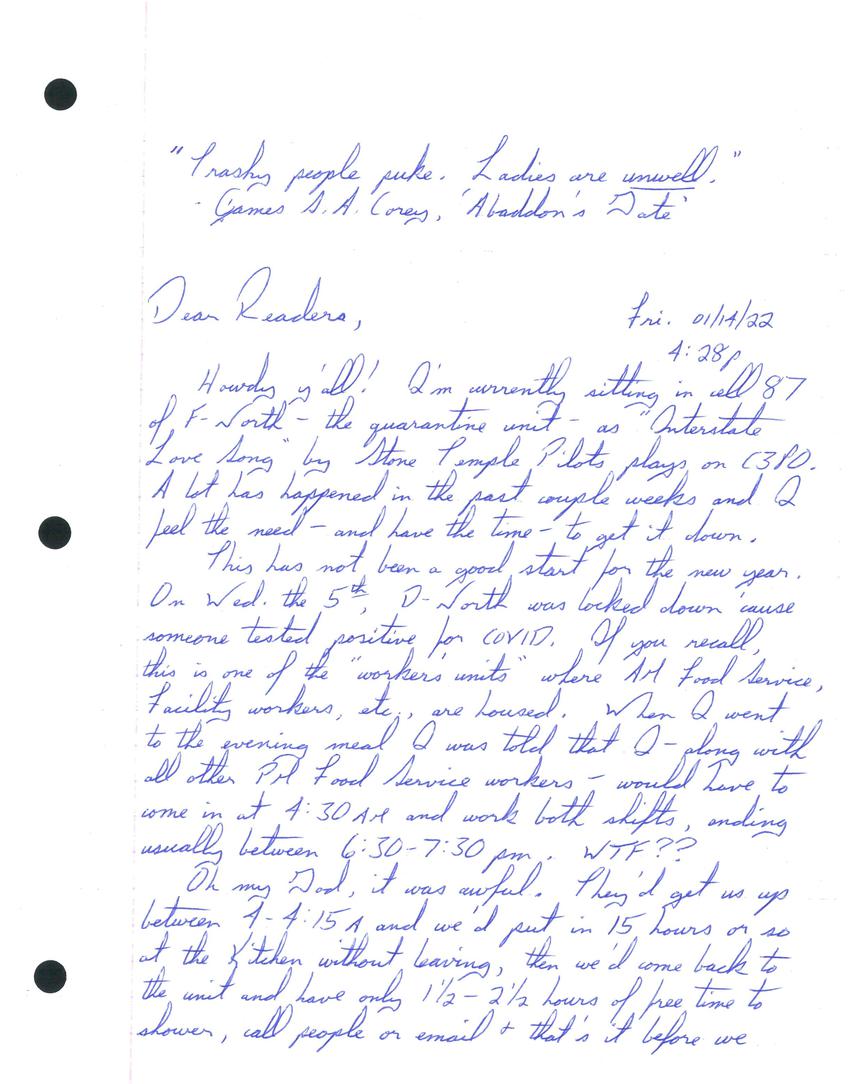 "Trashy people puke. Ladies are unwell."
- James S.A. Corey, 'Abaddon's Gate'
Dear Readers,
Fri. 01/14/22
4:28p
Howdy y'all! I'm currently sitting in cell 87
of F-North - the quarantine unit - as "Interstate
Love Song" by Stone Temple Pilots plays on C3PO.
A lot has happened in the past couple weeks and I
feel the need - and have the time - to get it down.
This has not been a good start for the new year.
On Wed. the 5th, D-North was locked down 'cause
someone tested positive for COVID. If you recall,
this is one of the "workers' units" where AM Food Service,
Facility workers, etc., are housed. When I went
to the evening meal I was told that I - along with
all other PM Food Service workers - would have to
come in at 4:30 AM and work both shifts, ending
usually between 6:30-7:30 pm. WTF??
Oh my God, it was awful. They'd get us up
between 4-4:15 A and we'd put in 15 hours or so
at the Kitchen without leaving, then we'd come back to
the unit and have only 1½ - 2½ hours of free time to
shower, call people or email + that's it before we